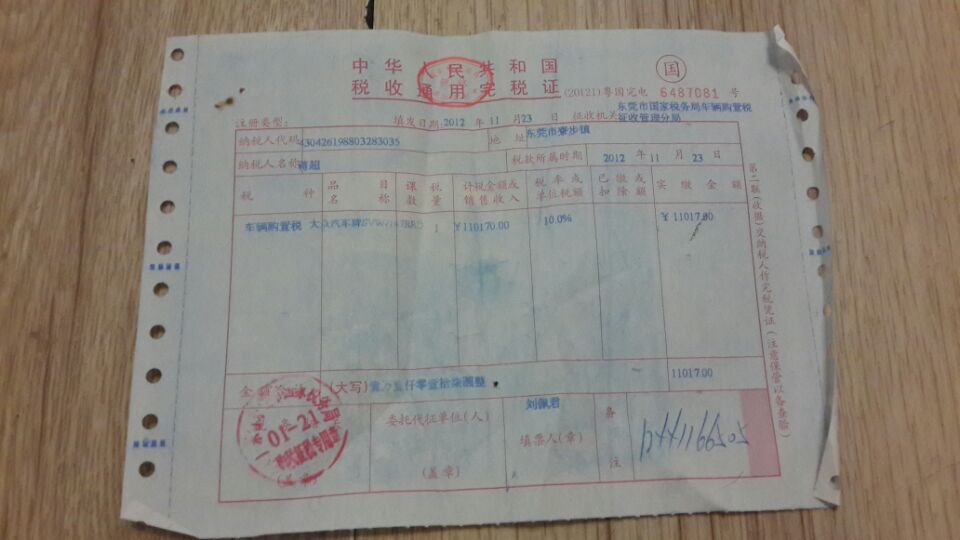 中华人民共和国
税收通用完税证
国
(20121)粤国完电 6487081 号
注册类型:
填发日期:2012 年 11 月 23 日
征收机关
东莞市国家税务局车辆购置税征收管理分局
纳税人代码 430426198803283035
地址 东莞市寮步镇
纳税人名称 蒋超
税款所属时期 2012 年 11 月 23 日
税种 品目名称 课税数量 计税金额或销售收入 税率或单位税额 已缴或扣除额 实缴金额
车辆购置税 大众汽车牌 1 ¥110170.00 10.0% ¥11017.00
金额合计 (大写) 壹万壹仟零壹拾柒圆整 11017.00
01-21
委托代征单位(人)
(盖章)
刘佩君
填票人(章)
备注
第二联(收据)交纳税人作完税凭证(注意保管以备查验)